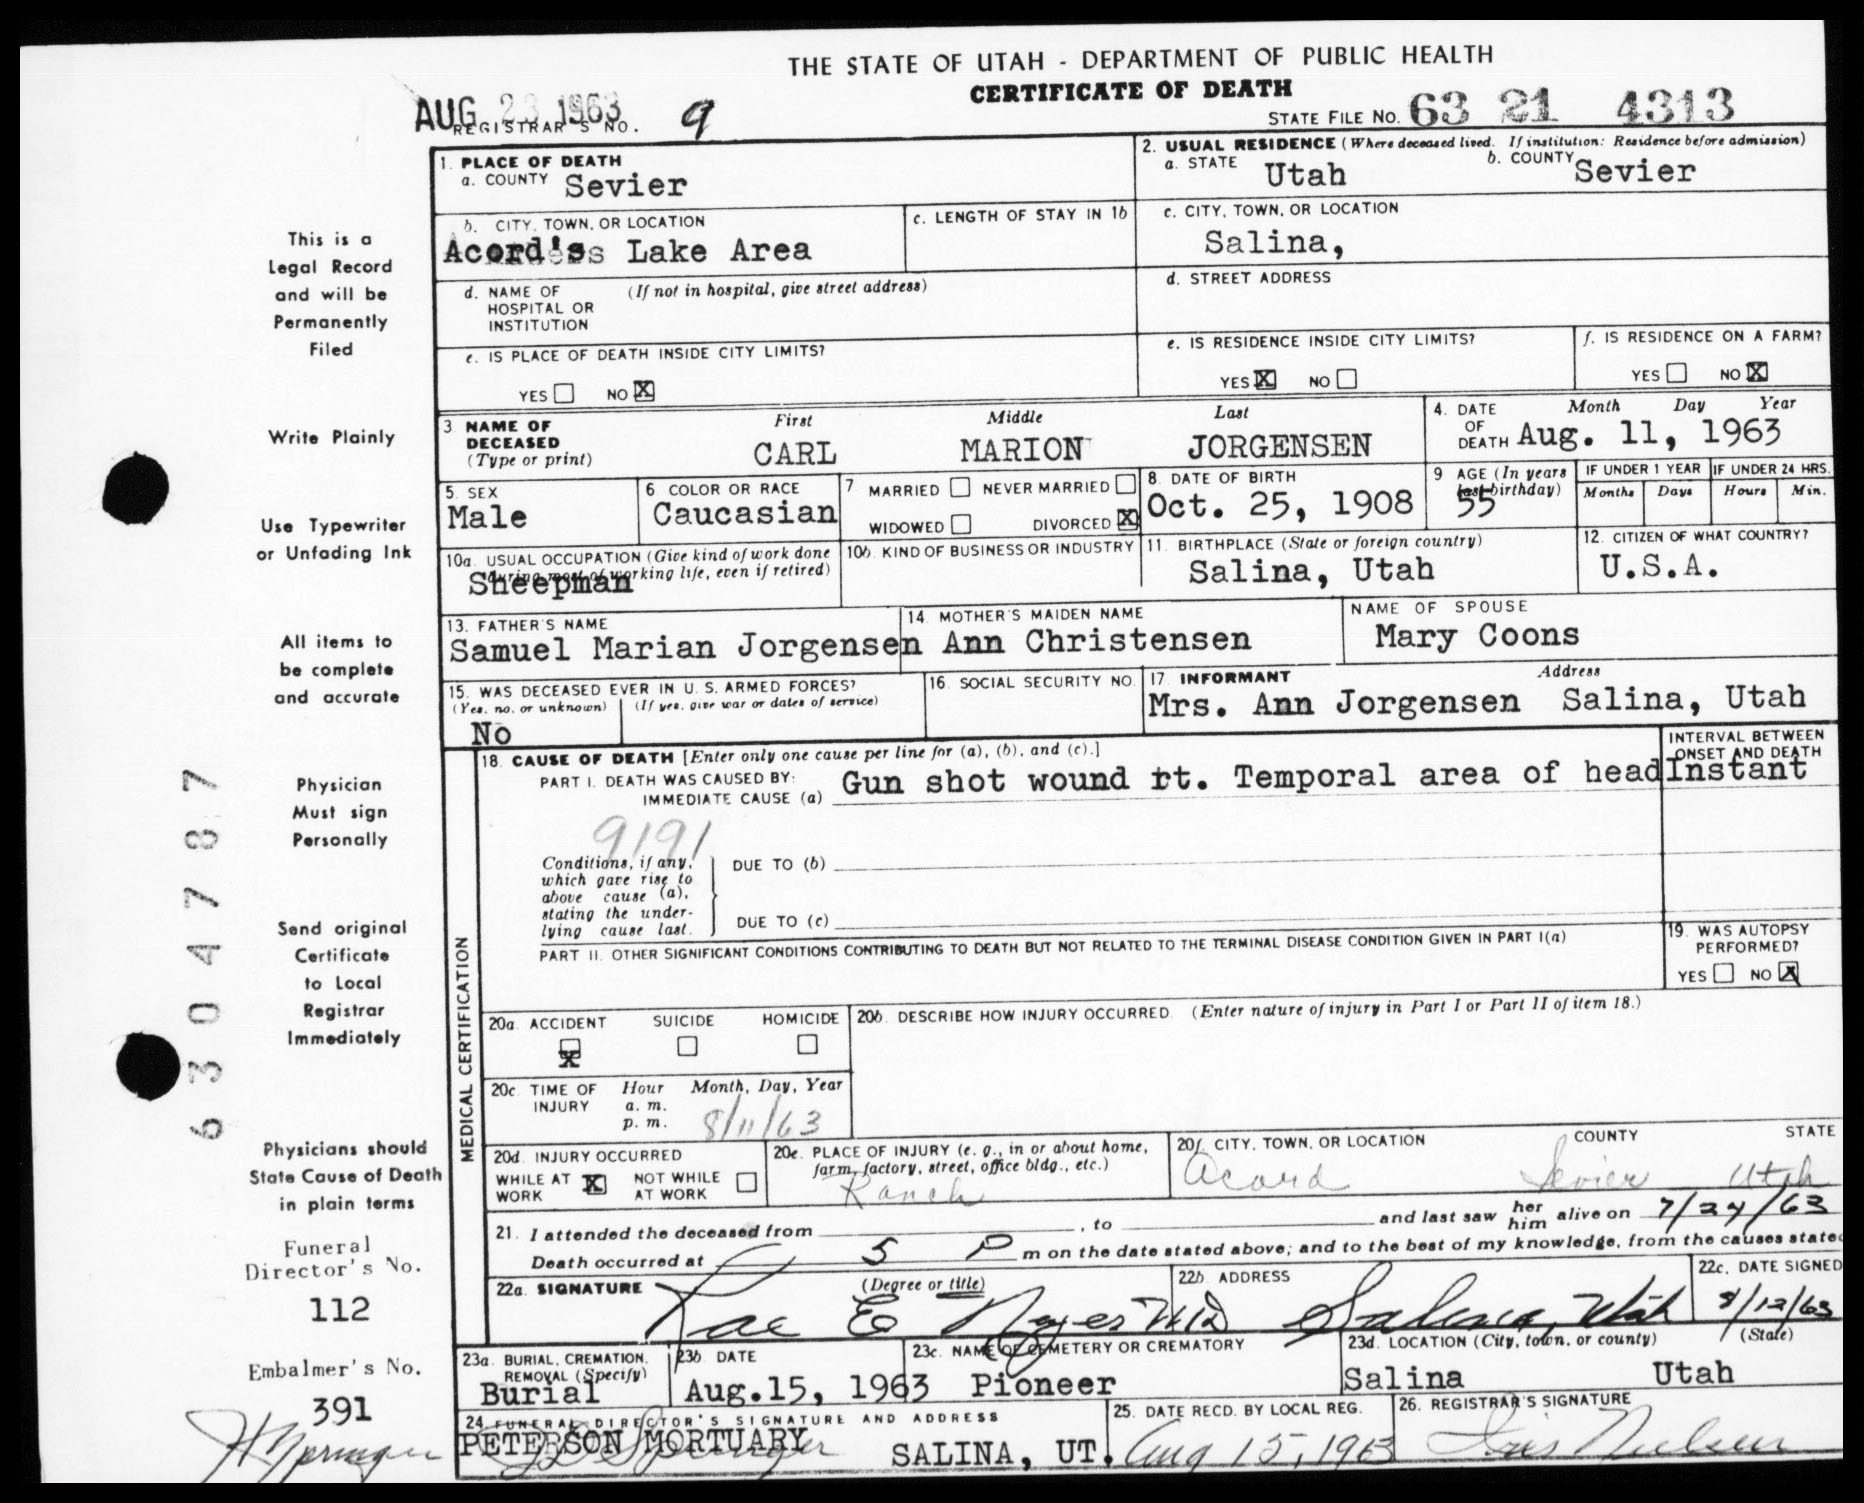 THE STATE OF UTAH - DEPARTMENT OF PUBLIC HEALTH
CERTIFICATE OF DEATH
AUG 23 1963
REGISTRAR'S NO. 9
STATE FILE NO. 63 21 4313
1. PLACE OF DEATH
a. COUNTY Sevier
2. USUAL RESIDENCE (Where deceased lived. If institution: Residence before admission)
a. STATE Utah b. COUNTY Sevier
b. CITY, TOWN, OR LOCATION
Acord's Lake Area
c. LENGTH OF STAY IN 1b
c. CITY, TOWN, OR LOCATION
Salina,
d. NAME OF HOSPITAL OR INSTITUTION (If not in hospital, give street address)
d. STREET ADDRESS
e. IS PLACE OF DEATH INSIDE CITY LIMITS?
YES NO X
e. IS RESIDENCE INSIDE CITY LIMITS?
YES X NO
f. IS RESIDENCE ON A FARM?
YES NO X
3 NAME OF DECEASED (Type or print)
First Middle Last
CARL MARION JORGENSEN
4. DATE OF DEATH Month Day Year
Aug. 11, 1963
5. SEX
Male
6 COLOR OR RACE
Caucasian
7 MARRIED NEVER MARRIED
WIDOWED DIVORCED X
8. DATE OF BIRTH
Oct. 25, 1908
9 AGE (In years last birthday)
55
IF UNDER 1 YEAR
Months Days
IF UNDER 24 HRS.
Hours Min.
10a. USUAL OCCUPATION (Give kind of work done during most of working life, even if retired)
Sheepman
10b. KIND OF BUSINESS OR INDUSTRY
11. BIRTHPLACE (State or foreign country)
Salina, Utah
12. CITIZEN OF WHAT COUNTRY?
U.S.A.
13. FATHER'S NAME
Samuel Marian Jorgensen
14. MOTHER'S MAIDEN NAME
Ann Christensen
NAME OF SPOUSE
Mary Coons
15. WAS DECEASED EVER IN U. S. ARMED FORCES?
(Yes, no, or unknown) (If yes, give war or dates of service)
No
16. SOCIAL SECURITY NO.
17. INFORMANT Address
Mrs. Ann Jorgensen Salina, Utah
MEDICAL CERTIFICATION
18. CAUSE OF DEATH [Enter only one cause per line for (a), (b), and (c).]
INTERVAL BETWEEN ONSET AND DEATH
PART I. DEATH WAS CAUSED BY:
IMMEDIATE CAUSE (a) Gun shot wound rt. Temporal area of head Instant
9191
Conditions, if any, which gave rise to above cause (a), stating the underlying cause last.
DUE TO (b)
DUE TO (c)
PART II. OTHER SIGNIFICANT CONDITIONS CONTRIBUTING TO DEATH BUT NOT RELATED TO THE TERMINAL DISEASE CONDITION GIVEN IN PART I(a)
19. WAS AUTOPSY PERFORMED?
YES NO X
20a. ACCIDENT SUICIDE HOMICIDE
X
20b. DESCRIBE HOW INJURY OCCURRED. (Enter nature of injury in Part I or Part II of item 18.)
20c. TIME OF INJURY Hour Month, Day, Year
a. m.
p. m. 8/11/63
20d. INJURY OCCURRED
WHILE AT WORK X NOT WHILE AT WORK
20e. PLACE OF INJURY (e. g., in or about home, farm, factory, street, office bldg., etc.)
Ranch
20f. CITY, TOWN, OR LOCATION COUNTY STATE
Acord Sevier Utah
21. I attended the deceased from , to and last saw her him alive on 7/24/63
Death occurred at 5 P m on the date stated above; and to the best of my knowledge, from the causes stated
22a. SIGNATURE (Degree or title)
Rae E Noyes MD
22b. ADDRESS
Salina, Utah
22c. DATE SIGNED
8/12/63
23a. BURIAL, CREMATION, REMOVAL (Specify)
Burial
23b. DATE
Aug.15, 1963
23c. NAME OF CEMETERY OR CREMATORY
Pioneer
23d. LOCATION (City, town, or county) (State)
Salina Utah
24. FUNERAL DIRECTOR'S SIGNATURE AND ADDRESS
PETERSON MORTUARY SALINA, UT.
25. DATE RECD. BY LOCAL REG.
Aug 15, 1963
26. REGISTRAR'S SIGNATURE
Iris Nielsen
This is a
Legal Record
and will be
Permanently
Filed
Write Plainly
Use Typewriter
or Unfading Ink
All items to
be complete
and accurate
Physician
Must sign
Personally
Send original
Certificate
to Local
Registrar
Immediately
Physicians should
State Cause of Death
in plain terms
Funeral
Director's No.
112
Embalmer's No.
391
6304787